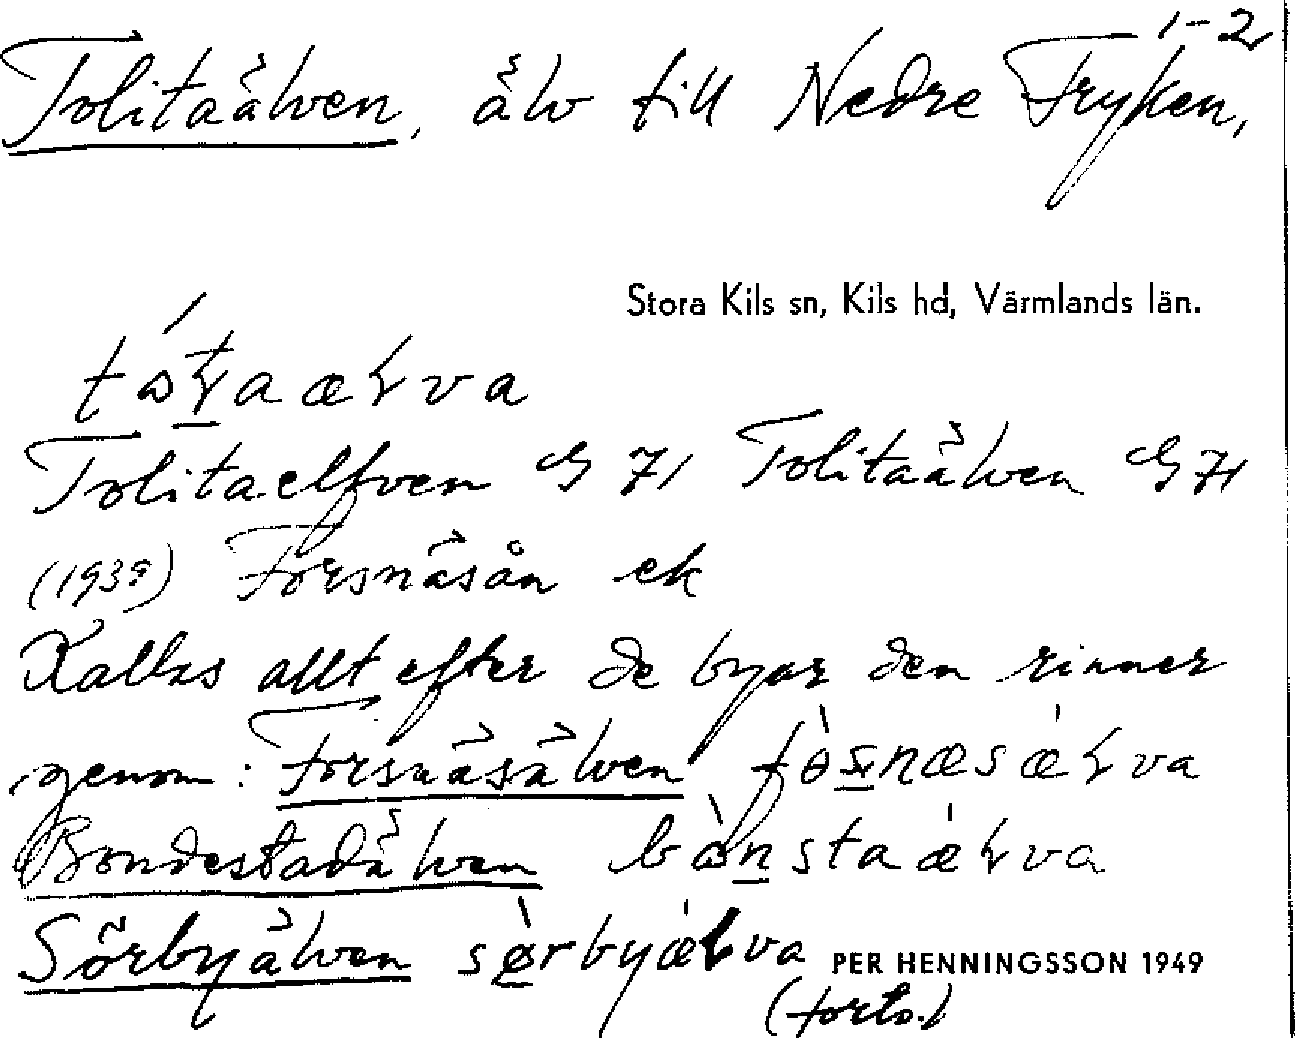 1-2
Tolitaälven, älv till Nedre Fryken,
Stora Kils sn, Kils hd, Värmlands län.
Tolitaelfven G 71 Tolitaälven G 71
(1939) Forsnäsån ek
Kallas allt efter de byar den rinner
genom: Forsnäsälven
Bondestadälven
Sörbyälven
PER HENNINGSSON 1949
(forts.)